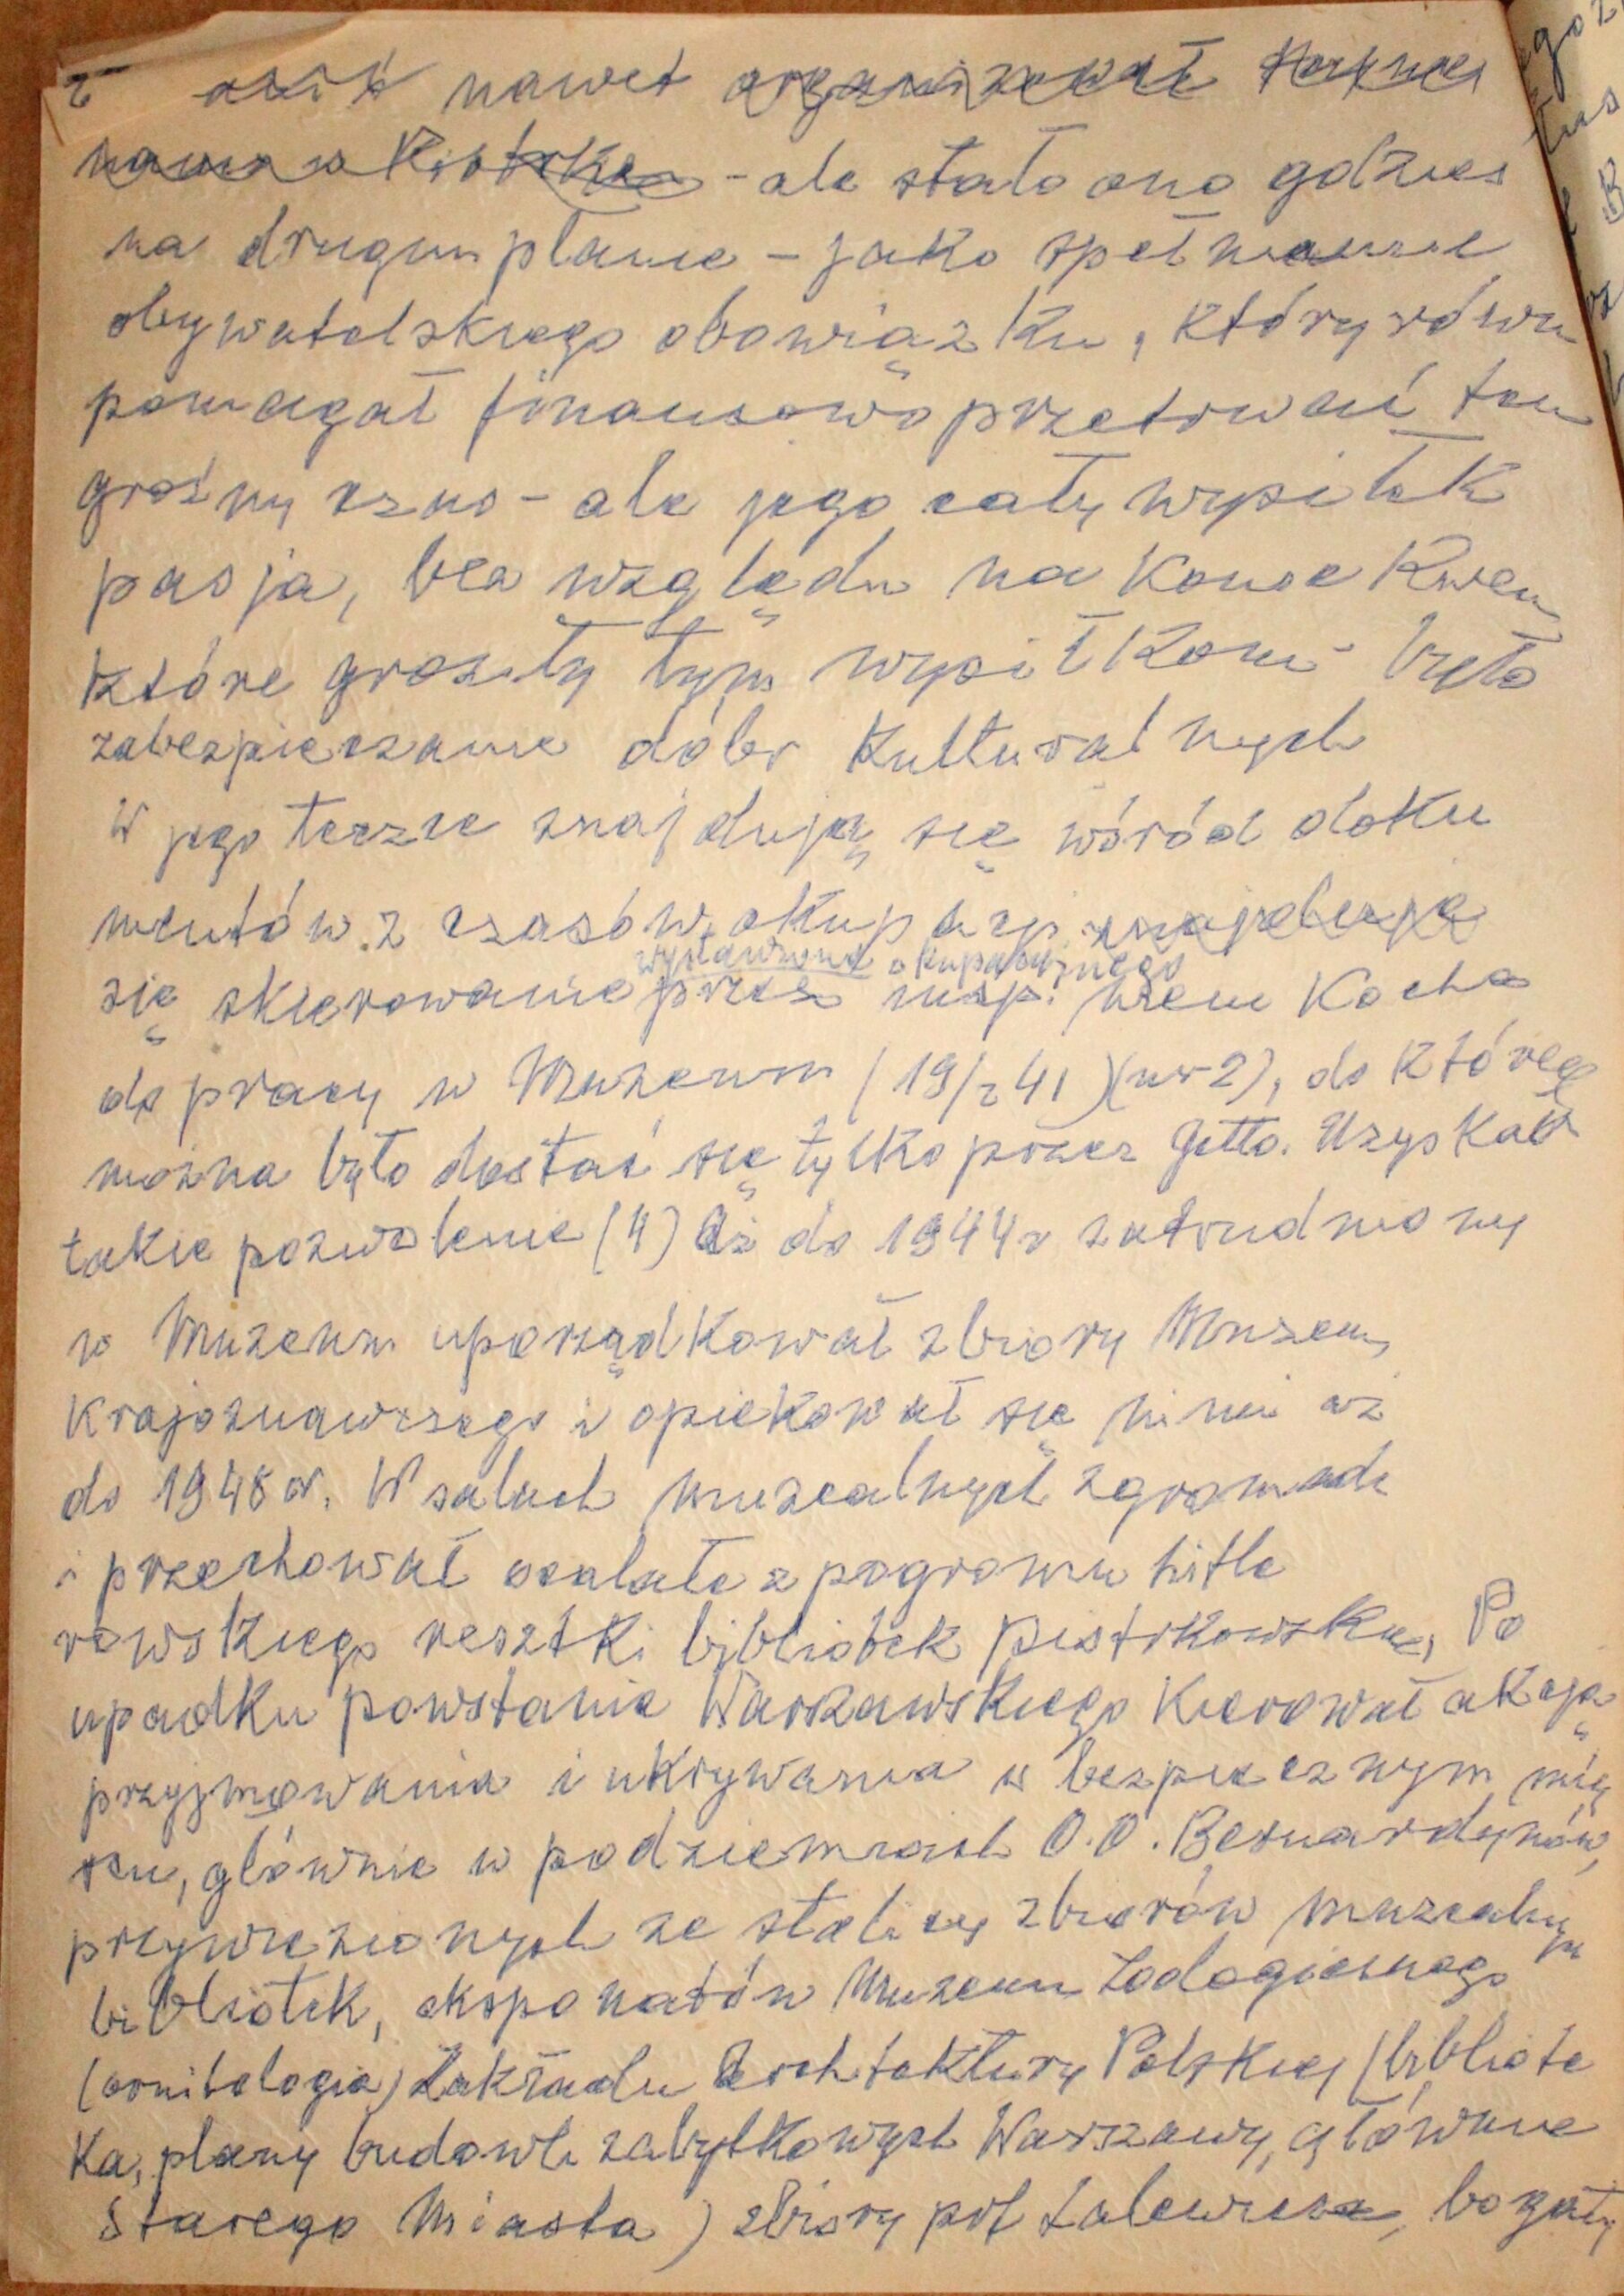 nawet organizował
- ale stało ono gdzieś
na drugim planie – jako spełnianie
obywatelskiego obowiązku, który równ
pomagał finansowo przetrwać ten
groźny czas – ale jego cały wysiłek
pasja, bez względu na konsekwen
które groziły tym wysiłkom – było
zabezpieczanie dóbr kulturalnych
W jego teczce znajdują się wśród doku
mentów z czasów okupacji znajduje
wystawione okupacyjnego
się skierowanie przez insp. Kocha
do pracy w Muzeum (19/2 41) (nr 2), do któreg
można było dostać się tylko przez Getto. Uzyskał
takie pozwolenie (4) Aż do 1944 r zatrudniony
w Muzeum uporządkował zbiory Muzeum
Krajoznawczego i opiekował się nimi aż
do 1948 r. W salach muzealnych zgromadz
i przechował ocalałe z pogromu hitle
rowskiego resztki bibliotek piotrkowskich, Po
upadku powstania Warszawskiego kierował akcją
przyjmowania i ukrywania w bezpiecznym miej
scu, głównie w podziemiach O.O. Bernardynów,
przywiezionych ze stolicy zbiorów muzealnych
bibliotek, eksponatów Muzeum Zoologicznego
(ornitologia) Zakładu Architektury Polskiej (bibliote
ka, plany budowli zabytkowych Warszawy, głównie
Starego Miasta) zbiory prof bogaty